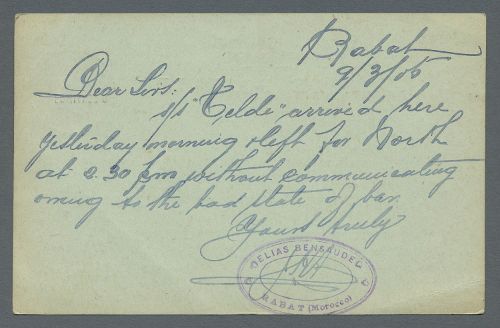 Rabat
9/3/05
Dear Sirs:
s/s "Telde" arrived here
yesterday morning & left for North
at 2.30 pm without communicating
owing to the bad state of bar.
Yours truly
ELIAS BENSAUDE
RABAT (Morocco)